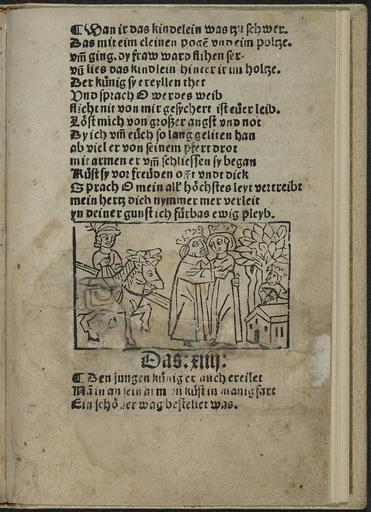 ¶ Wan ir das kindelein was tzu schwer.
Das mit eim cleinen pogē vnd eim poltze.
vm̄ ging. dy fraw ward flihen ser.
vn̄ lies das kindlein hinter ir im holtze.
Der künig sy ereyllen thet
Vnd sprach O werdes weib
flicht nit von mir gesychert ist eüer leib.
Löst mich von großer angst vnd not
Dy ich vm̄ eüch so lang geliten han
ab viel er von seinem pfert drot
mit armen er vm̄ schliessen sy began
Küst sy vor freüden offt vndt dick
Sprach O mein all höchstes leyt vertreibt
mein hertz dich nymmer mer verleit
yn deiner gunst ich fürbas ewig pleyb.
Das: xiiij:
¶ Den jungen künig er auch ereilet
Nā in an sein arm vn küst in manigfart
Ein schöner wag bestellet was.